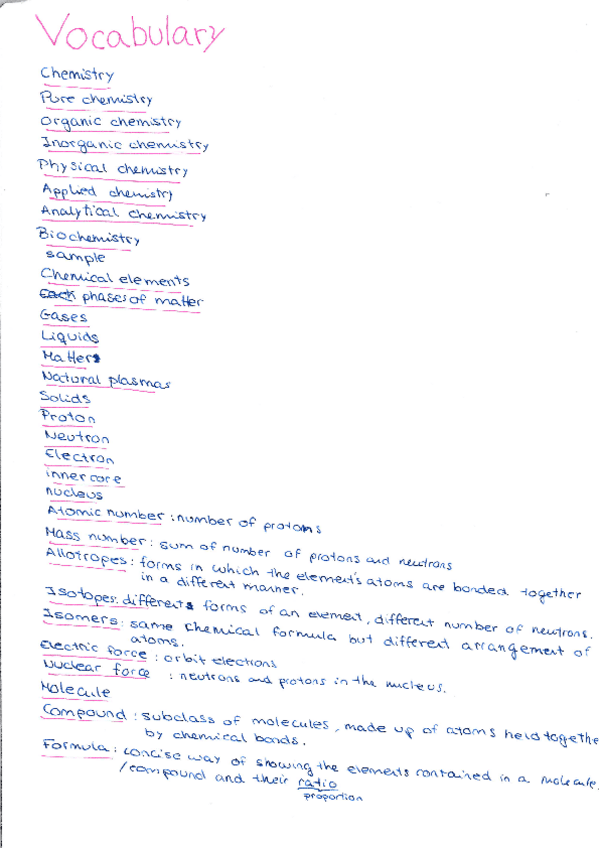 Vocabulary
Chemistry
Pure chemistry
Organic chemistry
Inorganic chemistry
Physical chemistry
Applied chemistry
Analytical chemistry
Biochemistry
sample
Chemical elements
Each phases of matter
Gases
Liquids
Matters
Natural plasmas
Solids
Proton
Neutron
Electron
inner core
nucleus
Atomic number : number of protons
Mass number : sum of number of protons and neutrons
Allotropes : forms in which the element's atoms are bonded together
in a different manner.
Isotopes: differents forms of an element, different number of neutrons.
Isomers : same chemical formula but different arrangement of
atoms.
Electric force : orbit elections
Nuclear force : neutrons and protons in the nucleus.
Molecule
Compound : subclass of molecules, made up of atoms held togethe
by chemical bonds.
Formula : concise way of showing the elements contained in a molecule,
/compound and their ratio
proportion